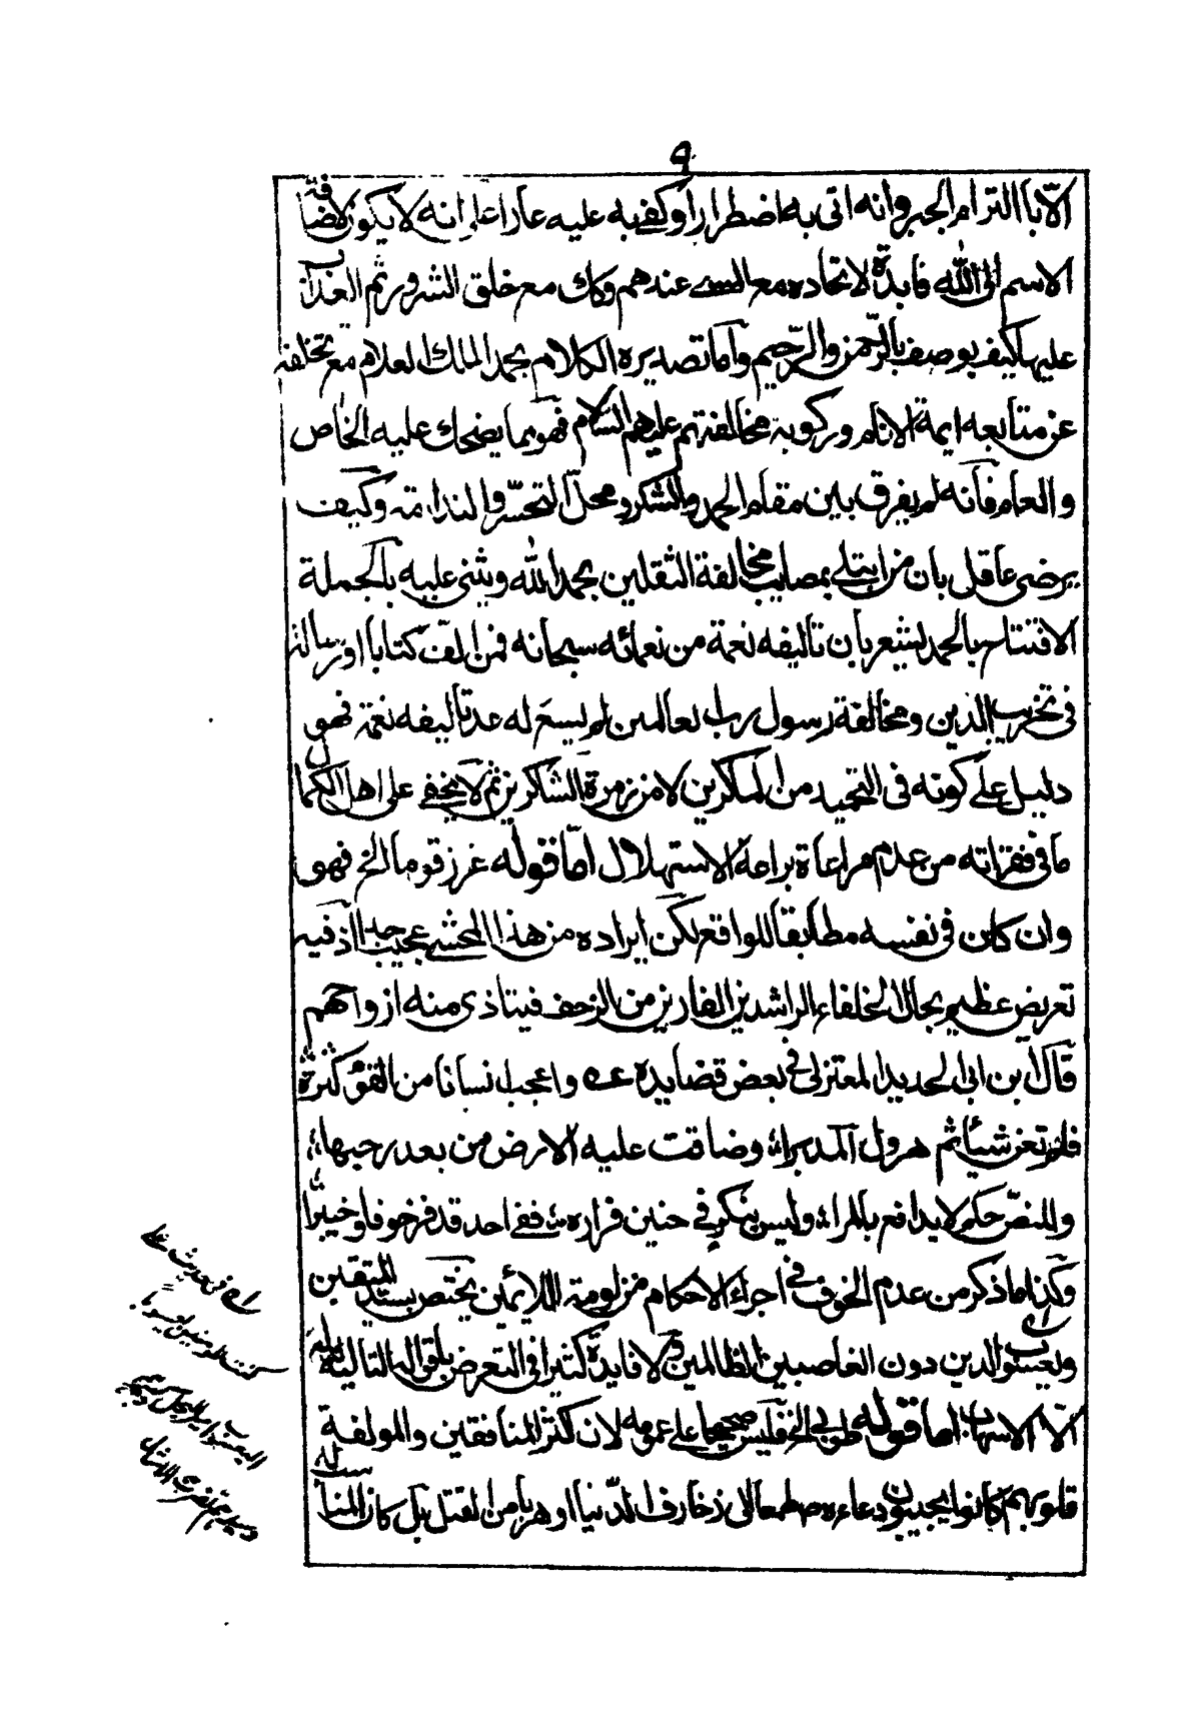 ٩
الّا بالتزام الجبر وانه اتى به اضطرارا وكفى به عليه عارا على انه لا يكون لاضافة
الاسم الى الله فايدة لاتحاده مع المسمى عندهم وكك مع خلق الشرور ثم العذاب
عليها كيف يوصف بالرّحمن والرّحيم وامّا تصديره الكلام بحمد الملك العلام مع تخلفه
عن متابعه ايمة الانام وركوبه مخالفتهم عليهم السّلام فهو مما يضحك عليه الخاص
والعام فانه لم يفرق بين مقام الحمد والشكر ومحلّ التحسّر والندامة وكيف
يرضى عاقل بان من ابتلى بمصايب مخالفة الثقلين يحمد الله ويثنى عليه بالجملة
الافتتاح بالحمد ليشعر بان تاليفه نعمة من نعمائه سبحانه فمن الّف كتابا او رسالة
فى تخريب الدين ومخالفة رسول رب العالمين لم يسع له عد تاليفه نعمة فهو
دليل على كونه فى التحميد من الماكرين لا من زمرة الشاكرين ثم لا يخفى على اهل الكمال
ما فى فقراته من عدم مراعاة براعة الاستهلال امّا قوله غرز قوما الخ فهو
وان كان فى نفسه مطابقا للواقع لكن ايراده من هذا المحشى عجيب جدا اذ فيه
تعريض عظيم بحال الخلفاء الراشدين الفارين من الزحف فيتاذى منه ارواحهم
قال ابن ابى الحديد المعتزلى فى بعض قصايده ع واعجب انسانا من القوم كثرة
فلم تغن شيئا ثم هرول مدبرا وضاقت عليه الارض من بعد رحبها
وللنصّ حكم لا يدافع بالمراء وليس بنكر فى حنين فراره ففى احد قد فر خوفا وخيبرا
وكذا ما ذكر من عدم الخوف فى اجراء الاحكام من لومة اللائمين يختص بسيد المتقين
ويعسوب الدين دون الغاصبين الظالمين ولا فايدة كثيرا فى التعرض بباقى اله التالية
الّا الاسهاب امّا قوله طوبى الخ فليس صحيحا على عمومه لان اكثر المنافقين والمولفة
قلوبهم كانوا يجيبون دعاءه طمعا الى زخارف الدّنيا او هربا من القتل بل كان المنا